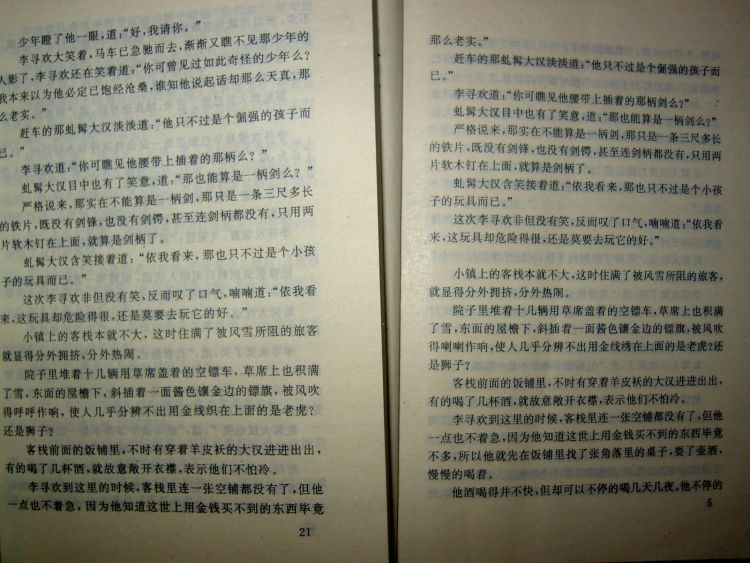 少年瞪了他一眼，道：“好，我请你。”
李寻欢大笑着，马车已急驰而去，渐渐又瞧不见那少年的
人影了，李寻欢还在笑着道：“你可曾见过如此奇怪的少年么？
我本来以为他必定已饱经沧桑，谁知他说起话却那么天真，那
么老实。”
赶车的那虬髯大汉淡淡道：“他只不过是个倔强的孩子而
已。”
李寻欢道：“你可瞧见他腰带上插着的那柄么？”
虬髯大汉目中也有了笑意，道：“那也能算是一柄剑么？”
严格说来，那实在不能算是一柄剑，那只是一条三尺多长
的铁片，既没有剑锋，也没有剑锷，甚至连剑柄都没有，只用两
片软木钉在上面，就算是剑柄了。
虬髯大汉含笑接着道：“依我看来，那也只不过是个小孩
子的玩具而已。”
这次李寻欢非但没有笑，反而叹了口气，喃喃道：“依我看
来，这玩具却危险得很，还是莫要去玩它的好。”
小镇上的客栈本就不大，这时住满了被风雪所阻的旅客
就显得分外拥挤，分外热闹。
院子里堆着十几辆用草席盖着的空镖车，草席上也积满
了雪，东面的屋檐下，斜插着一面酱色镶金边的镖旗，被风吹
得呼呼作响，使人几乎分辨不出用金线织在上面的是老虎？
还是狮子？
客栈前面的饭铺里，不时有穿着羊皮袄的大汉进进出出，
有的喝了几杯酒，就故意敞开衣襟，表示他们不怕冷。
李寻欢到这里的时候，客栈里连一张空铺都没有了，但他
一点也不着急，因为他知道这世上用金钱买不到的东西毕竟
21
那么老实。”
赶车的那虬髯大汉淡淡道：“他只不过是个倔强的孩子而
已。”
李寻欢道：“你可瞧见他腰带上插着的那柄剑么？”
虬髯大汉目中也有了笑意，道：“那也能算是一柄剑么？”
严格说来，那实在不能算是一柄剑，那只是一条三尺多长
的铁片，既没有剑锋，也没有剑锷，甚至连剑柄都没有，只用两
片软木钉在上面，就算是剑柄了。
虬髯大汉含笑接着道：“依我看来，那也只不过是个小孩
子的玩具而已。”
这次李寻欢非但没有笑，反而叹了口气，喃喃道：“依我看
来，这玩具却危险得很，还是莫要去玩它的好。”
小镇上的客栈本就不大，这时住满了被风雪所阻的旅客，
就显得分外拥挤，分外热闹。
院子里堆着十几辆用草席盖着的空镖车，草席上也积满
了雪，东面的屋檐下，斜插着一面酱色镶金边的镖旗，被风吹
得喇喇作响，使人几乎分辨不出用金线绣在上面的是老虎？还
是狮子？
客栈前面的饭铺里，不时有穿着羊皮袄的大汉进进出出，
有的喝了几杯酒，就故意敞开衣襟，表示他们不怕冷。
李寻欢到这里的时候，客栈里连一张空铺都没有了，但他
一点也不着急，因为他知道这世上用金钱买不到的东西毕竟
不多，所以他就先在饭铺里找了张角落里的桌子，要了壶酒，
慢慢的喝着。
他酒喝得并不快，但却可以不停的喝几天几夜，他不停的
5